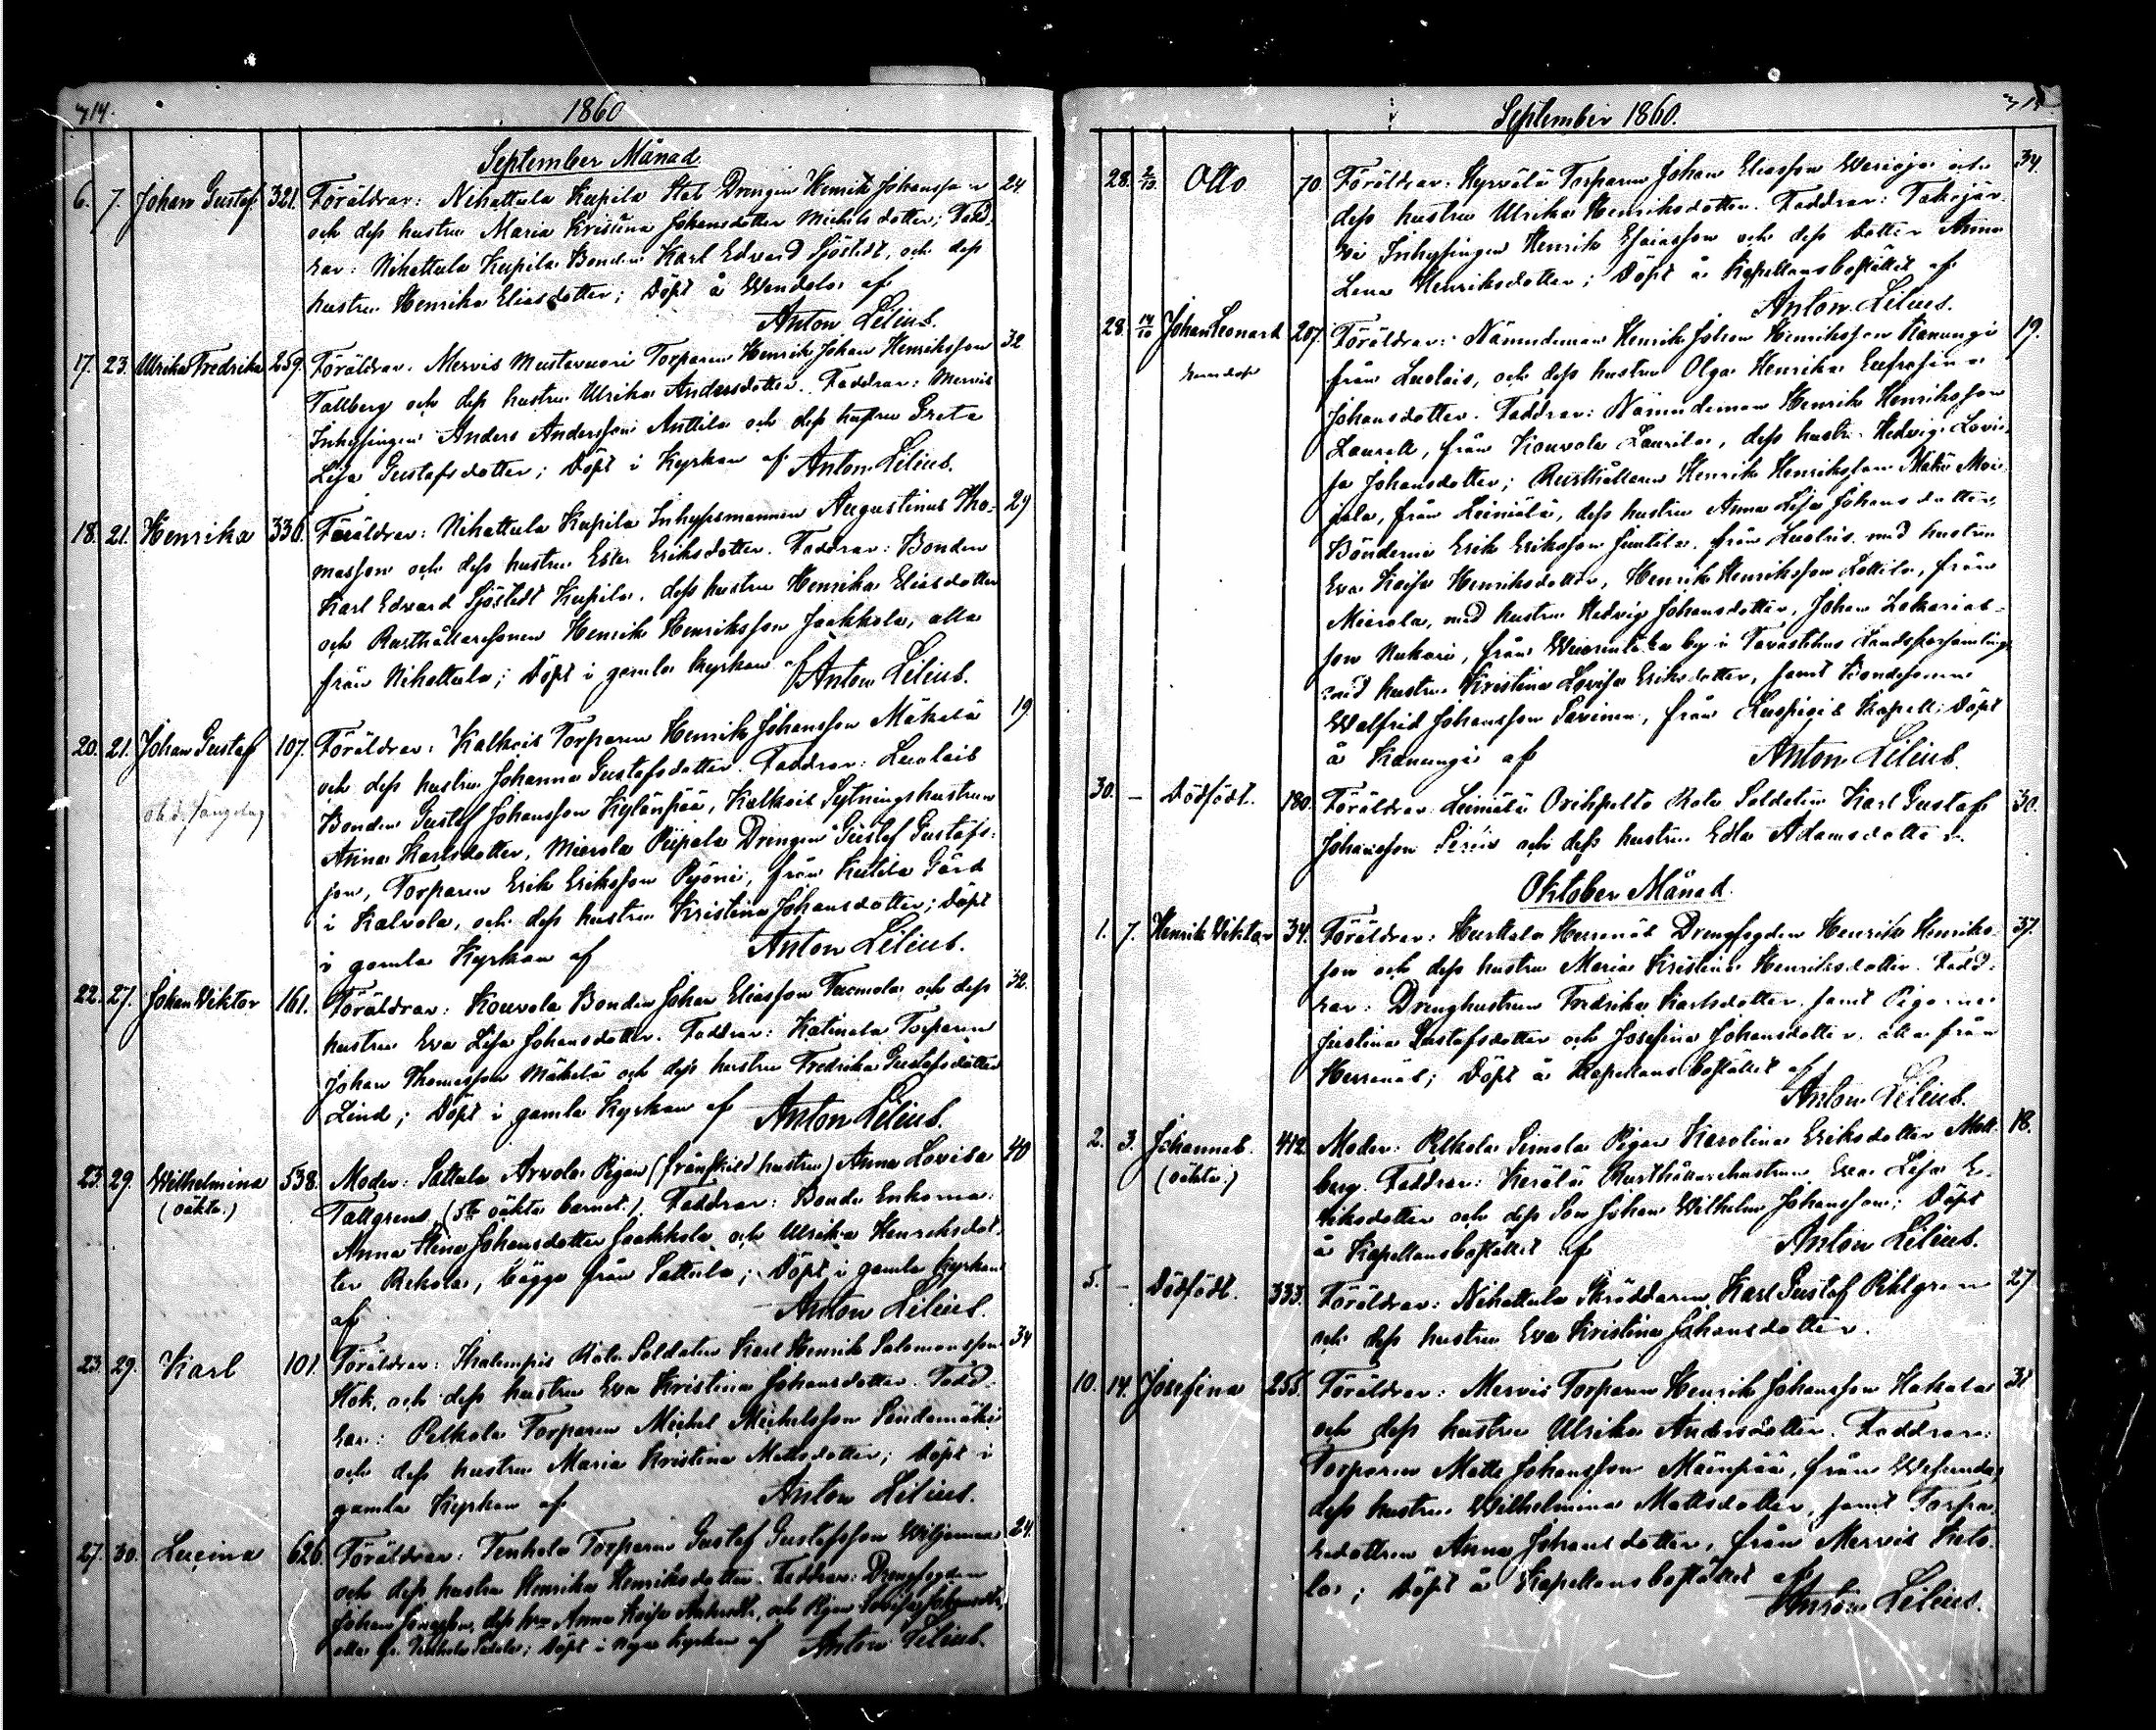 714.
1860
September Månad.
6. 7. Johan Gustaf 321. Föräldrar: Nihattula Kupila Stat Drengen Henrik Johansson 24
och dess hustru Maria Kristina Johansdotter Michelsdotter; Fadd-
rar: Nihattula Kupila Bonden Karl Edvard Sjöstedt, och dess
hustru Henrika Eliasdotter; Döpt å af
Anton Lilius.
17. 23. Ulrika Fredrika 259. Föräldrar: Mervis Mustavuori Torparen Henrik Johan Henriksson 32
Tallberg och dess hustru Ulrika Andersdotter. Faddrar: Mervis
Inhysingen Anders Andersson Anttila och dess hustru Greta
Lisa Gustafsdotter; Döpt i Kyrkan af Anton Lilius.
18. 21. Henrika 336. Föräldrar: Nihattula Kupila Inhysesmannen Augustinus Tho- 29
masson och dess hustru Ester Eriksdotter. Faddrar: Bonden
Karl Edvard Sjöstedt Kupila, dess hustru Henrika Eliasdotter
och Rusthållaresonen Henrik Henriksson Jaakkola, alla
från Nihattula; Döpt i gamla Kyrkan af Anton Lilius.
20. 21. Johan Gustaf 107. Föräldrar: Kalkois Torparen Henrik Johansson Mäkelä 19.
och dess hustru Johanna Gustafsdotter. Faddrar: Luolais
Bonden Gustaf Johansson Kylänpää, Kalkois Sytningshustrun
Anna Karlsdotter, Mierola Piipala Drengen Gustaf Gustafs-
son, Torparen Erik Eriksson Pyöni, från Kutila Gård
i Kalvola, och dess hustru Kristina Johansdotter; Döpt
i gamla Kyrkan af Anton Lilius.
22. 27. Johan Viktor 161. Föräldrar: Kouvola Bonden Johan Eliasson Tuomola och dess 32.
hustru Eva Lisa Johansdotter. Faddrar: Katinala Torparen
Johan Thomasson Mäkelä och dess hustru Fredrika Gustafsdotter
Lind; Döpt i gamla Kyrkan af Anton Lilius.
23. 29. Wilhelmina 538. Moder: Sattula Arvola Pigan (frånskild hustru) Anna Lovisa 40
(oäkta.) Tallgren, (5te oäkta barnet.) Faddrar: Bonde Enkorna
Anna Stina Johansdotter Jaakkola och Ulrika Henriksdot-
ter Rekola, bägge från Sattula; Döpt i gamla Kyrkan
af Anton Lilius.
23 29. Karl 101. Föräldrar: Ihalempis Rote Soldaten Karl Henrik Salomonsson 34
Hok, och dess hustru Eva Kristina Johansdotter. Fadd-
rar: Pelkola Torparen Michel Michelsson Sandamäki
och dess hustru Maria Kristina Mattsdotter; Döpt i
gamla Kyrkan af Anton Lilius.
27. 30. Lucina 626. Föräldrar: Tenhola Torparen Gustaf Gustafsson Wiljamaa 24.
och dess hustru Henrika Henriksdotter. Faddrar: Drengfogden
Johan dess hru Anna Kaisa och Pigan
alla fr. Döpt i nya Kyrkan af Anton Lilius.
September 1860.
28. 2/10. Otto 70. Föräldrar: Hyrvälä Torparen Johan Eliasson och 34.
dess hustru Ulrika Henriksdotter. Faddrar: Takajär-
vi Inhysingen Henrik Esaiasson och dess dotter Anna
Lena Henriksdotter; Döpt å Kapellansbostället af
Anton Lilius.
28. 14/10 Johan Leonard 207. Föräldrar: Nämndeman Henrik Johan Henriksson Kanungi 19.
från Luolais, och dess hustru Olga Henrika Eufrosina
Johansdotter. Faddrar: Nämndeman Henrik Henriksson
Laurell, från Kouvola Laurila, dess hustru Hedvig Lovi-
sa Johansdotter; Rusthållaren Henrik Henriksson
från Leiniälä, dess hustru Anna Lisa Johansdotter,
Bönderne Erik Eriksson Simtila från Luolais med hustru
Eva Kaisa Henriksdotter, Henrik Henriksson Lottila, från
Mierola, med hustru Hedvig Johansdotter, Johan Zakarias-
son Nukari, från by i Tavastehus Landsförsamling
med hustru Kristina Lovisa Eriksdotter, samt Bondesonen
Walfrid Johansson Savinen, från Kapell; Döpt
å Kanungi af Anton Lilius.
30. – Dödfödt. 180. Föräldrar: Leiniälä Orihpelto Rote Soldaten Karl Gustaf 30.
Johansson och dess hustru Edla Adamsdotter.
Oktober Månad.
1. 7. Henrik Viktor 34. Föräldrar: Hurttala Herrnäs Drengfogden Henrik Henriks- 37.
son och dess hustru Maria Kristina Henriksdotter. Fadd-
rar: Drenghustrun Fredrika Karlsdotter, samt Pigorna
Justina Gustafsdotter och Josefina Johansdotter, alla från
Herrnäs; Döpt å Kapellansbostället af
Anton Lilius.
2. 3. Johannes. 412. Moder: Pelkola Simola Pigan Karolina Eriksdotter Mell- 18.
(oäkta.) berg. Faddrar: Kerälä Rusthållarehustrun Eva Lisa E-
riksdotter och dess Son Johan Wilhelm Johansson; Döpt
å Kapellansbostället af Anton Lilius.
5. – Dödfödt. 333. Föräldrar: Nihattula Skräddaren Karl Gustaf Pihlgren 27.
och dess hustru Eva Kristina Johansdotter.
10. 14. Josefina 255. Föräldrar: Mervis Torparen Henrik Johansson Hakala 31
och dess hustru Ulrika Andersdotter. Faddrar:
Torparen Matts Johansson Mäenpää, från Wesunda,
dess hustru Wilhelmina Mattsdotter, samt Torpa-
redottren Anna Johansdotter, från Mervis Keto-
la; Döpt å Kapellansbostället af
Anton Lilius.